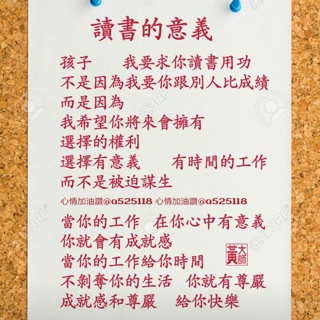 讀書的意義
孩子　我要求你讀書用功
不是因為我要你跟別人比成績
而是因為
我希望你將來會擁有
選擇的權利
選擇有意義　有時間的工作
而不是被迫謀生
心情加油讚@a525118 心情加油讚@a525118
當你的工作 在你心中有意義
你就會有成就感
當你的工作給你時間
不剝奪你的生活 你就有尊嚴
成就感和尊嚴　給你快樂
黃大師